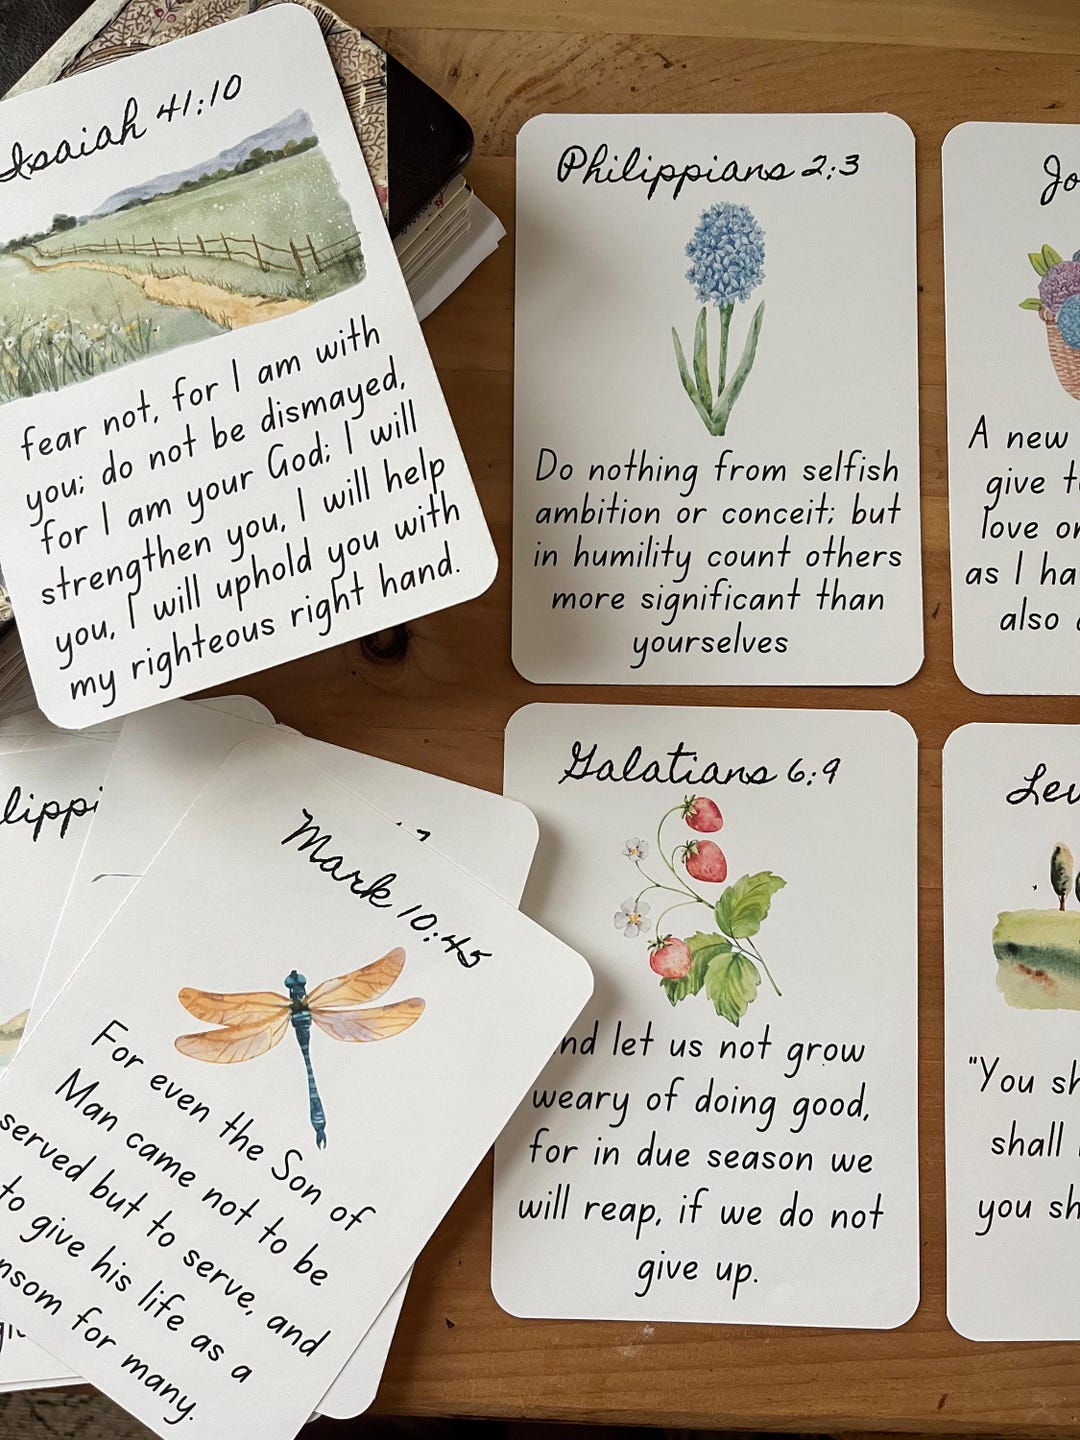 Isaiah 41:10
fear not, for I am with
you; do not be dismayed,
for I am your God; I will
strengthen you, I will help
you, I will uphold you with
my righteous right hand.
Philippians 2:3
Do nothing from selfish
ambition or conceit; but
in humility count others
more significant than
yourselves
A new
give
love
as I
also
Mark 10:45
For even the Son of
Man came not to be
served but to serve, and
to give his life as a
for many.
Galatians 6:9
let us not grow
weary of doing good,
for in due season we
will reap, if we do not
give up.
"You
shall
you